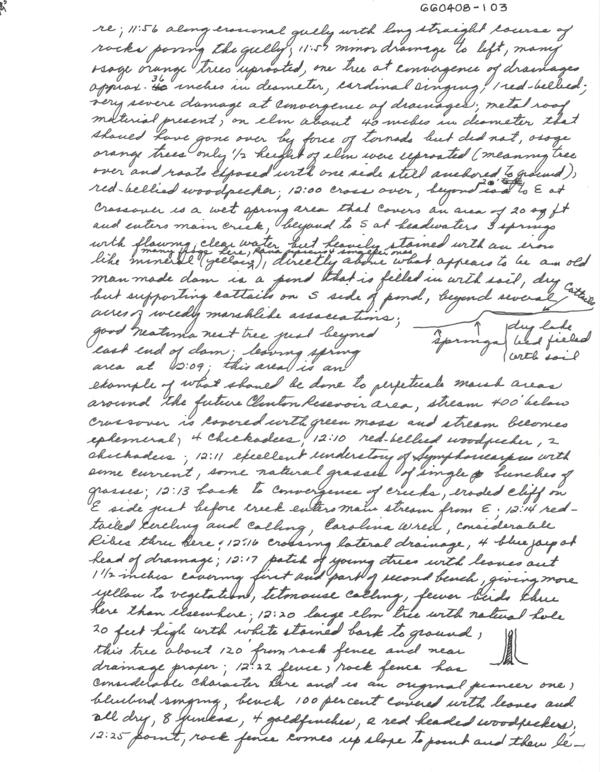 660408-103
re; 11:56 along erosional gully with long straight course of
rocks paving the gully; 11:57 minor drainage to left, many
osage orange trees uprooted, one tree at convergence of drainages
approx. 36 inches in diameter, cardinal singing, 1 red-bellied;
very severe damage at convergence of drainages; metal roof
material present, on elm about 40 inches in diameter that
should have gone over by force of tornado but did not, osage
orange trees only 1/2 height of elm were uprooted (meaning tree
over and roots exposed with one side still anchored to ground),
red-bellied woodpecker; 12:00 cross over, beyond 20' to E at
crossover is a wet spring area that covers an area of 20 sq ft
and enters main creek, beyond to S at headwaters 3 springs
with flowing, clear water but heavily stained with an iron
many frogs here, singing
like mineral (yellow), directly above what appears to be an old
man made dam is a pond that is filled in with soil, dry
but supporting cattails on S side of pond, beyond several
Cattails
acres of weedy marshlike associations;
good neotoma nest tree just beyond
east end of dam; leaving spring
springs
dry lake
bed filled
with soil
area at 12:09; this area is an
example of what should be done to perpetuate marsh areas
around the future Clinton Reservoir area, stream 400' below
crossover is covered with green moss and stream becomes
ephemeral, 4 chickadees, 12:10 red-bellied woodpecker, 2
chickadees; 12:11 excellent understory of Symphoricarpus with
some currant, some natural grasses of single bunches of
grasses; 12:13 back to convergence of creeks, eroded cliff on
E side just before creek enters main stream from E; 12:14 red-
tailed circling and calling, Carolina wren, considerable
Ribes thru here; 12:16 crossing lateral drainage, 4 blue jays at
head of drainage; 12:17 patch of young trees with leaves out
1 1/2 inches covering first and part of second bench, giving more
yellow to vegetation, titmouse calling, fewer birds thru
here than elsewhere; 12:20 large elm tree with natural hole
20 feet high with white stained bark to ground;
this tree about 120' from rock fence and near
drainage proper; 12:22 fence, rock fence has
considerable character here and is an original pioneer one;
bluebird singing, bench 100 percent covered with leaves and
all dry, 8 juncos, 4 goldfinches, 2 red headed woodpeckers;
12:25 point, rock fence comes up slope to point and then le-